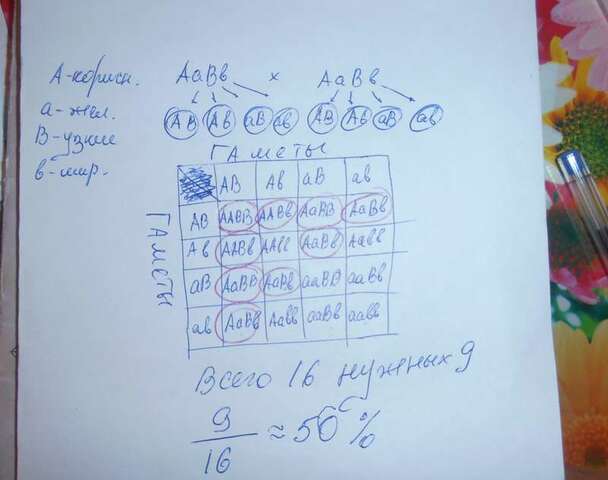 А-коричн. АаВв х АаВв
а-жёл. АВ Ав аВ ав АВ Ав аВ ав
В-узкие
в-шир.
ГАметы
ГАметы
АВ Ав аВ ав
АВ ААВВ ААВв АаВВ АаВв
Ав ААВв ААвв АаВв Аавв
аВ АаВВ АаВв ааВВ ааВв
ав АаВв Аавв ааВв аавв
Всего 16 нужных 9
9
16 ≈ 56 %